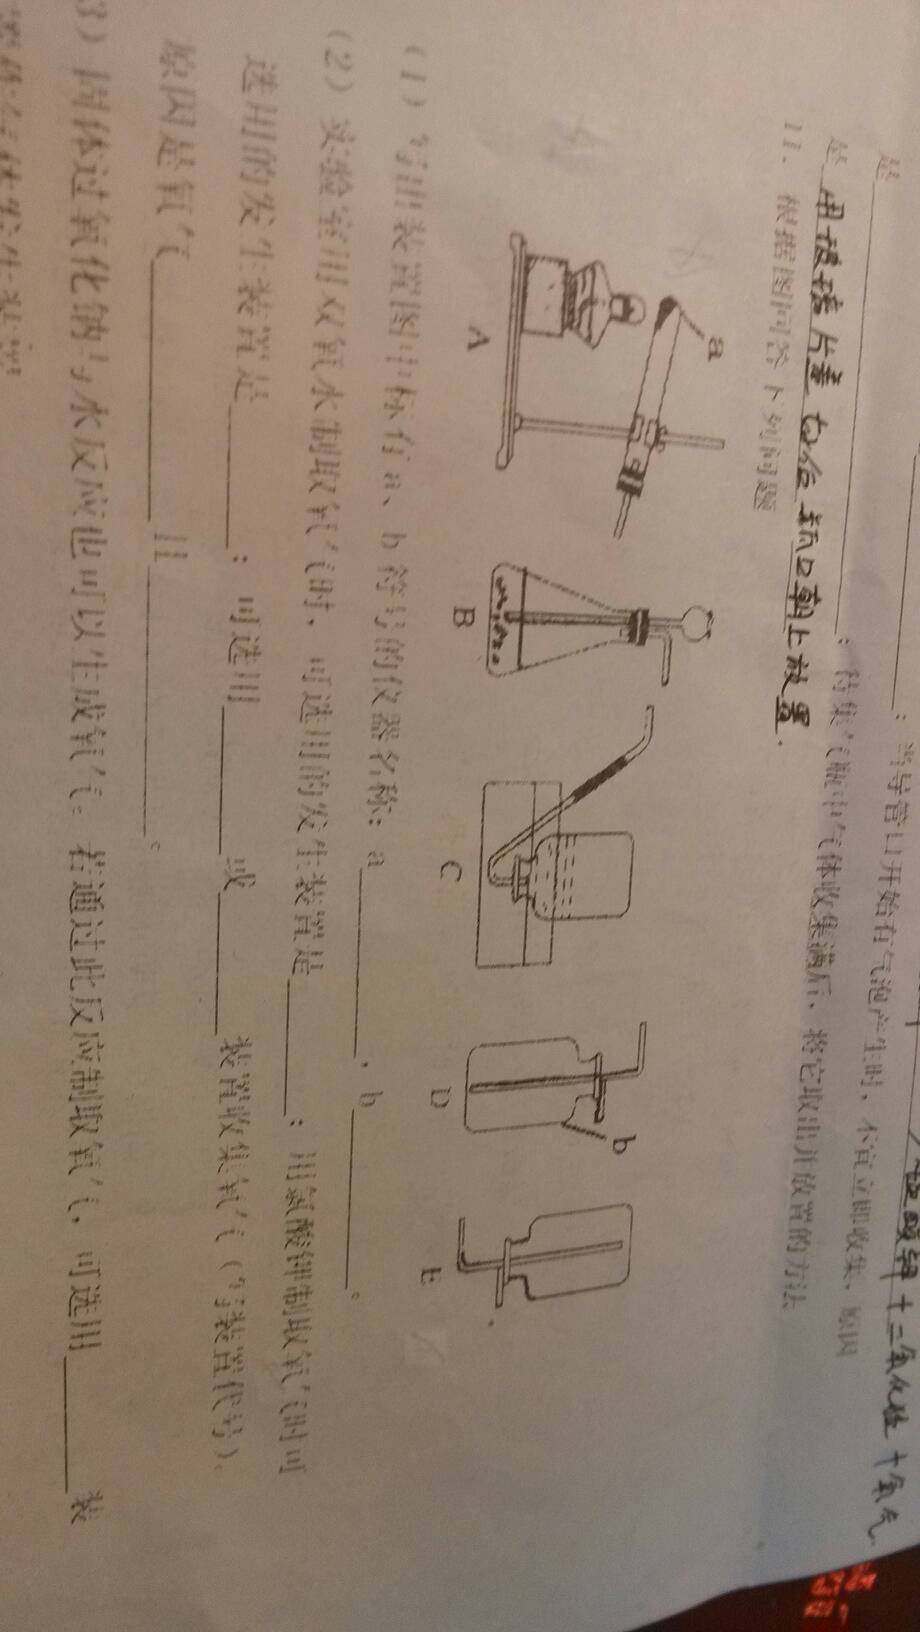 极酸钾+二氧化锰+氧气
是 ；当导管口开始有气泡产生时，不宜立即收集，原因
是 ；待集气瓶中气体收集满后，将它取出并放置的方法
是 用玻璃片盖 瓶口朝上放置.
11、根据图回答下列问题
a
b
A B C D E
(1) 写出装置图中标有a、b符号的仪器名称：a ，b 。
(2) 实验室用双氧水制取氧气时，可选用的发生装置是 ；用氯酸钾制取氧气时可
选用的发生装置是 ；可选用 或 装置收集氧气（写装置代号），
原因是氧气 且 。
3）固体过氧化钠与水反应也可以生成氧气。若通过此反应制取氧气，可选用 装